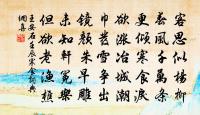 客思似楊柳
春風千萬條
更傾寒食淚
欲漲冶城潮
巾發雪爭出
鏡顏朱早凋
未知軒冕樂
但欲老漁樵
王安石壬辰寒食